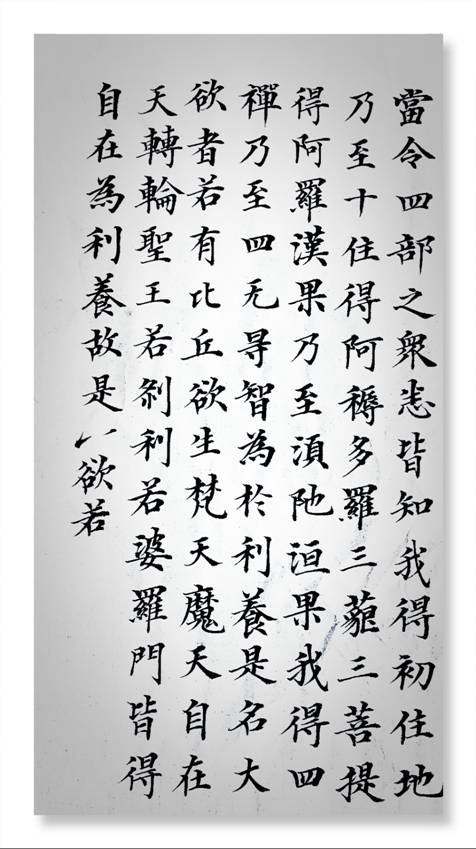 當令四部之衆悉皆知我得初住地
乃至十住得阿耨多羅三藐三菩提
得阿羅漢果乃至湏陁洹果我得四
禪乃至四无㝵智為於利養是名大
欲者若有比丘欲生梵天魔天自在
天轉輪聖王若刹利若婆羅門皆得
自在為利養故是欲若